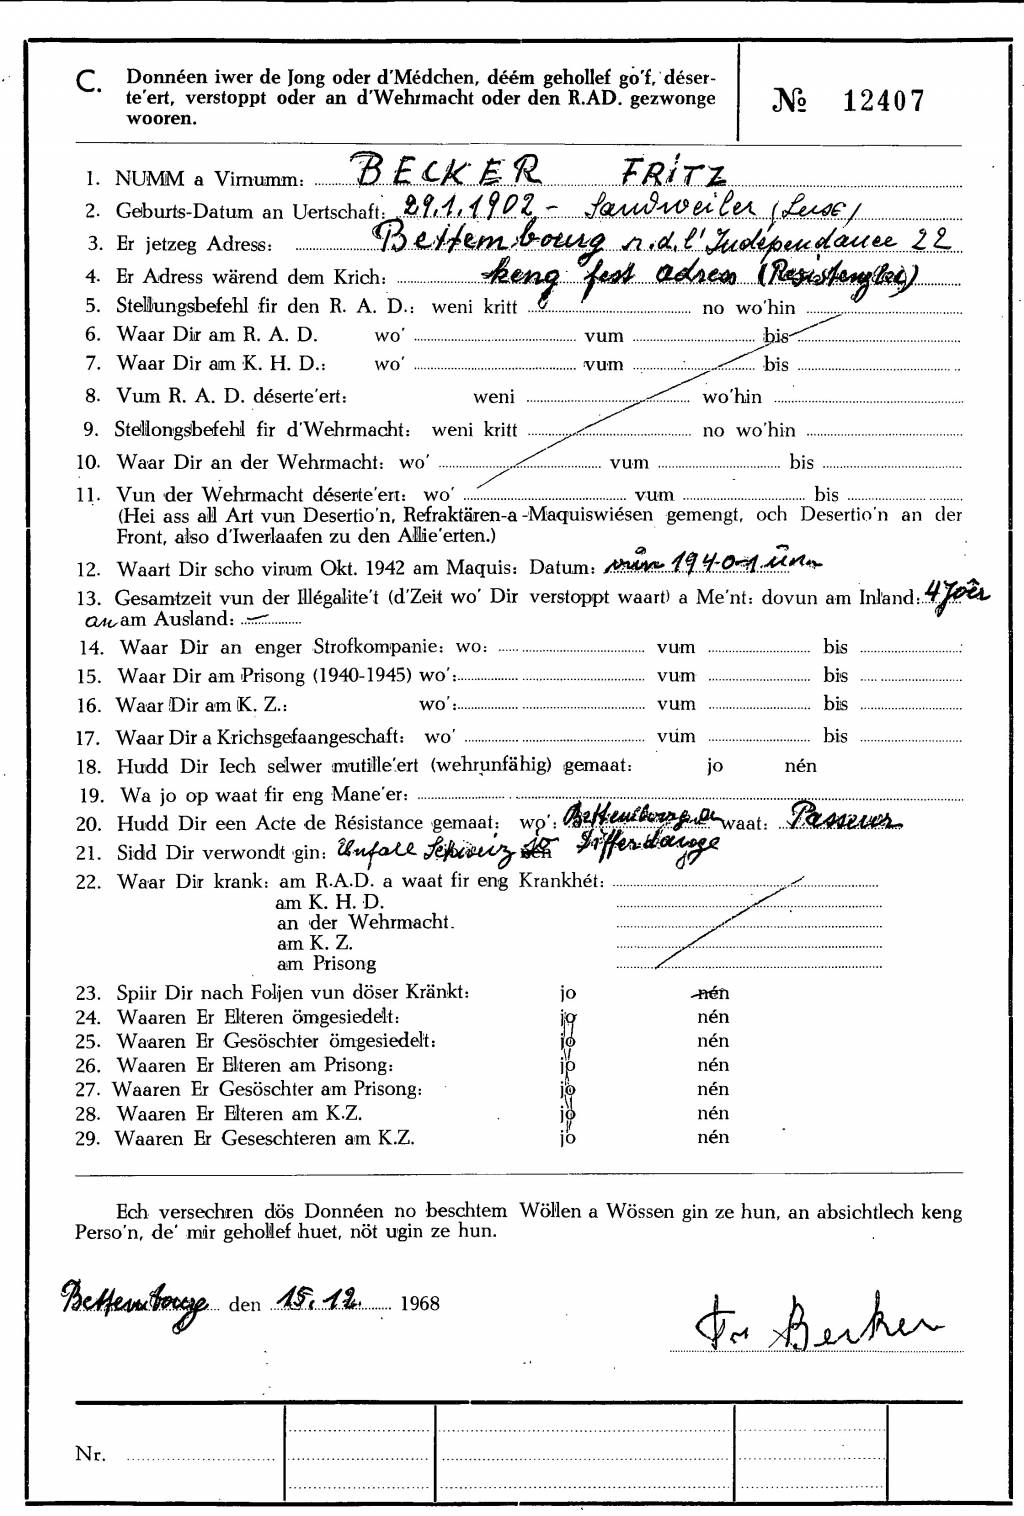 C. Donnéen iwer de Jong oder d'Médchen, déém gehollef go'f, déser-
te'ert, verstoppt oder an d'Wehrmacht oder den R.AD. gezwonge
wooren.
№ 12407
1. NUMM a Virnumm: BECKER FRITZ
2. Geburts-Datum an Uertschaft: 29.1.1902 - Sandweiler (Luse)
3. Er jetzeg Adress: Bettembourg r.d.l'Indépendance 22
4. Er Adress wärend dem Krich: keng fest adress (Resistenzler)
5. Stellungsbefehl fir den R. A. D.: weni kritt no wo'hin
6. Waar Dir am R. A. D. wo' vum bis
7. Waar Dir am K. H. D.: wo' vum bis
8. Vum R. A. D. déserte'ert: weni wo'hin
9. Stellongsbefehl fir d'Wehrmacht: weni kritt no wo'hin
10. Waar Dir an der Wehrmacht: wo' vum bis
11. Vun der Wehrmacht déserte'ert: wo' vum bis
(Hei ass all Art vun Desertio'n, Refraktären-a-Maquiswiésen gemengt, och Desertio'n an der
Front, also d'Iwerlaafen zu den Allie'erten.)
12. Waart Dir scho virum Okt. 1942 am Maquis: Datum: vun 1940-1 un
13. Gesamtzeit vun der Illégalite't (d'Zeit wo' Dir verstoppt waart) a Me'nt: dovun am Inland: 4 Joër
an am Ausland: —
14. Waar Dir an enger Strofkompanie: wo: vum bis
15. Waar Dir am Prisong (1940-1945) wo': vum bis
16. Waar Dir am K. Z.: wo': vum bis
17. Waar Dir a Krichsgefaangeschaft: wo' vum bis
18. Hudd Dir Iech selwer mutille'ert (wehrunfähig) gemaat: jo nén
19. Wa jo op waat fir eng Mane'er:
20. Hudd Dir een Acte de Résistance gemaat: wo': Bettembourg waat: Passeur
21. Sidd Dir verwondt gin: Unfall Schweiz Differdange
22. Waar Dir krank: am R.A.D. a waat fir eng Krankhét:
am K. H. D.
an der Wehrmacht.
am K. Z.
am Prisong
23. Spiir Dir nach Foljen vun döser Kränkt: jo nén
24. Waaren Er Elteren ömgesiedelt: jo nén
25. Waaren Er Gesöschter ömgesiedelt: jo nén
26. Waaren Er Elteren am Prisong: jo nén
27. Waaren Er Gesöschter am Prisong: jo nén
28. Waaren Er Elteren am K.Z. jo nén
29. Waaren Er Geseschteren am K.Z. jo nén
Ech versechren dös Donnéen no beschtem Wöllen a Wössen gin ze hun, an absichtlech keng
Perso'n, de' mir gehollef huet, nöt ugin ze hun.
Bettembourg den 15.12. 1968
Fr Becker
Nr.